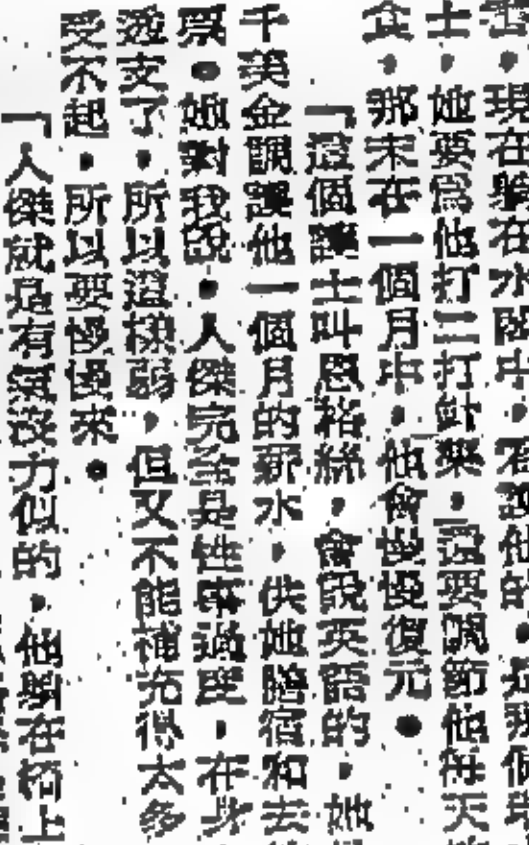 現在躺在水國中，
士，她要爲他打一打針來，還要調節他每天
食，那末在一個月中，他會慢慢復元。
「這個護士叫恩裕絲，會說英語的，她
千美金調護他一個月的薪水，供她膳宿和去
票。她對我說，人傑完全是性事過度，在身
透支了，所以這樣弱，但又不能補充得太多
受不起，所以要慢慢來。
「人傑就是有氣沒力似的，他躺在椅上